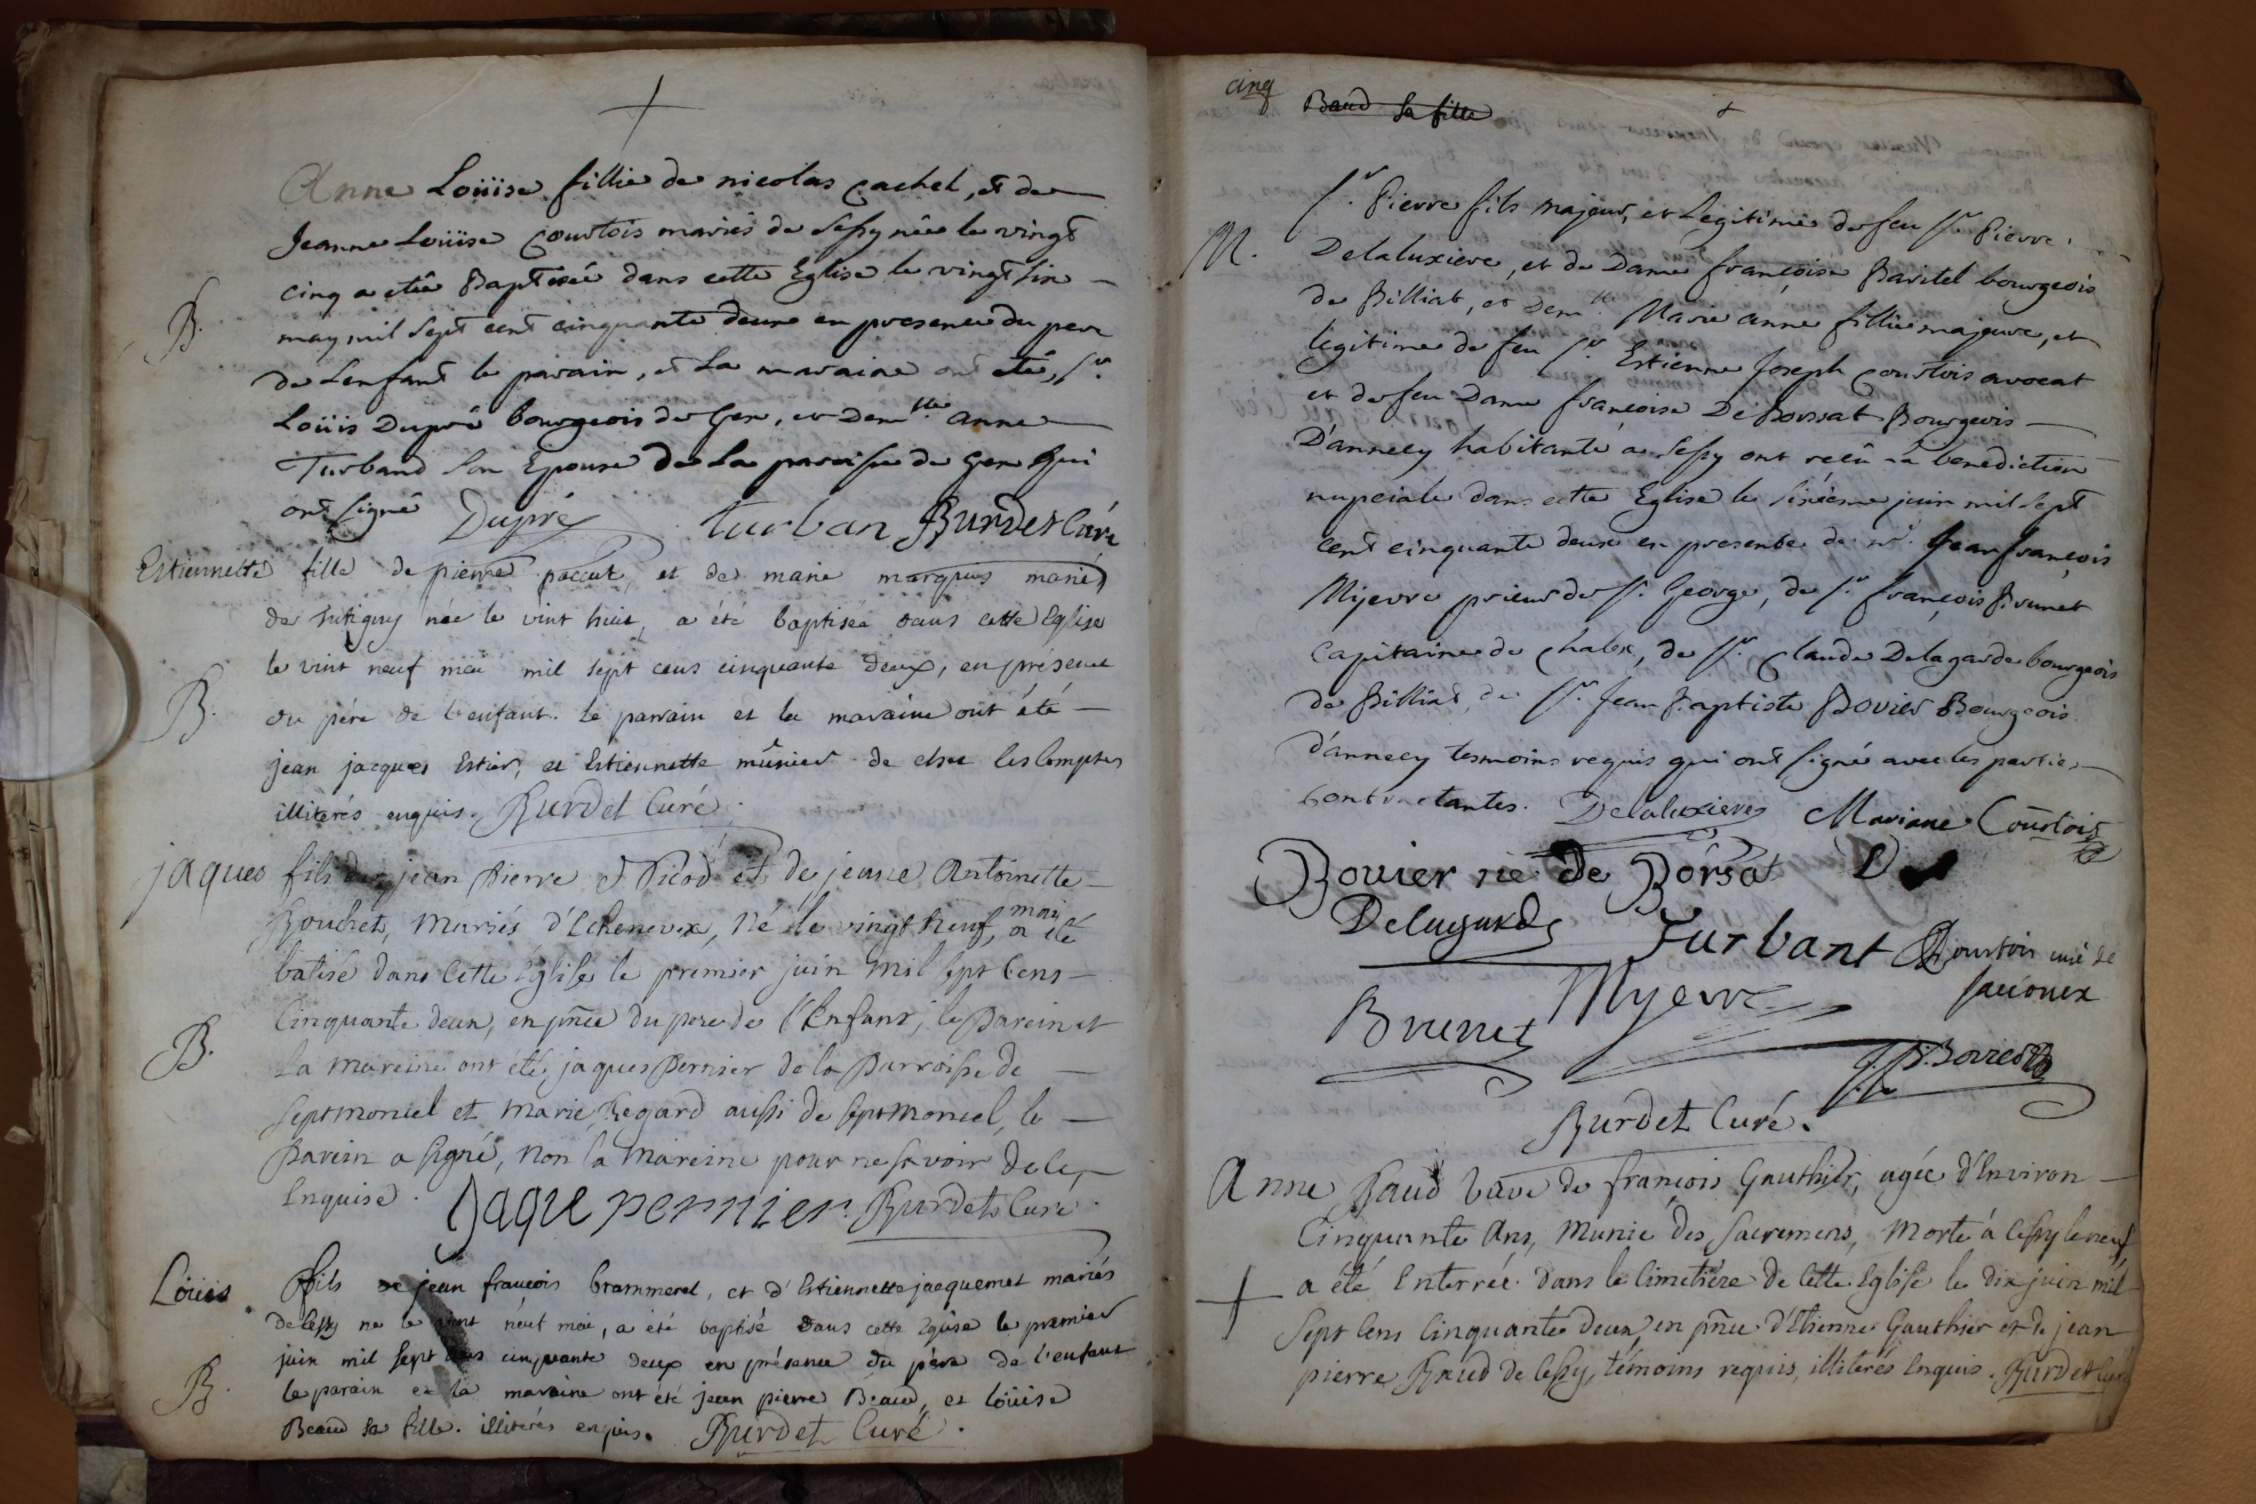 Anne Loüise fillie de nicolas Cachel, et de
Jeanne Loüise Courtois mariés de Sessy née le vingt
cinq a etée Baptisée dans cette Eglise le vingt six
B.
may mil sept cent cinquante deux en presence du pere
de Lenfant le parain, et La maraine ont eté, Sr.
Loüis Dupré bourgeois de Gex, et Demlle. anne
Turband son Epouse de La paroisse de Gex qui
ont signé Dupré turban Burdet Curé
Estiennette fille de pierre paccut, et de marie marquis mariés
de née le vint huit, a été baptisée dans cette Eglise
le vint neuf mai mil sept cens cinquante deux, en présence
B.
du pére de l'enfant. le parrain et la maraine ont été
jean jacques Estier, et Estiennette mûnier de chez les Comptes
illiterés enquis. Burdet Curé.
jaques fils de jean Pierre Nicod et de jeane Antoinette
Bouchet, Mariés d'Echenevex, Né le vingt Neuf, mai a été
batisé dans Cette Eglise le premier juin Mil Sept Cens
Cinquante deux, en pñce du pere de l'Enfant, le Parein et
B.
La Mareine ont été, jaques Pernier de la Parroisse de
Septmoncel et Marie Regard aussi de Septmoncel, le
Parein a signé, Non la Mareine pour ne savoir de ce,
Enquise. Jaque pernier. Burdet Curé.
Loüis fils de jean francois brammerel, et d'Estiennette jacquemet mariés
de Cessy né le vint neuf mai, a été baptisé dans cette Eglise le premier
juin mil sept cens cinquante deux en présence du pére de l'enfant
B.
le parain et la maraine ont été jean pierre Beaud, et loüise
Beaud sa fille. illiterés enquis. Burdet Curé.
cinq
Baud sa fille
Sr. Pierre fils majeur, et Legitime de feu Sr. Pierre
M.
Delaluxiere, et de Dame françoise Baritel bourgeois
de Billiat, et Demlle. Marie anne fillie majeure, et
legitime de feu Sr. Estienne Joseph Courtois avocat
et de feu Dame françoise De Borssat Bourgeois
D'annecy habitante a Sessy ont reçû la benediction
nupciale dans cette Eglise le sixiesme juin mil sept
cent cinquante deux en presence de mr. Jean françois
Mijevre prieur de St. George, de Sr. françois Brunet
Capitaine de Chalex, de Sr. Claude Delagarde bourgeois
de Billiat, de Sr. Jean Baptiste Bovier Bourgeois
d'annecy tesmoins requis qui ont signé avec les parties
contractantes. Delaluxiere Mariane Courtois
Bovier né de Borsat D
Delagarde Turbant Courtois curé de
Sauvonex
Brunet Myevre
j. B. Bovier
Burdet Curé.
Anne Baud Vüve de françois Gauthier, agée d'Environ
Cinquante Ans, Munie des Sacremens, Morte à Cessy le neuf
a été Enterrée dans le Cimetiére de Cette Eglise le dix juin mil
Sept Cens Cinquante deux, en pñce d'Etienne Gauthier et de jean
pierre Baud de Cessy, témoins requis, illiterés Enquis. Burdet Curé